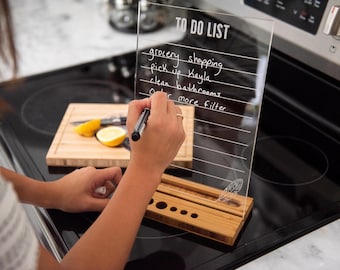 TO DO LIST
grocery shopping
pick up Kayla
clean bathrooms
order more filter